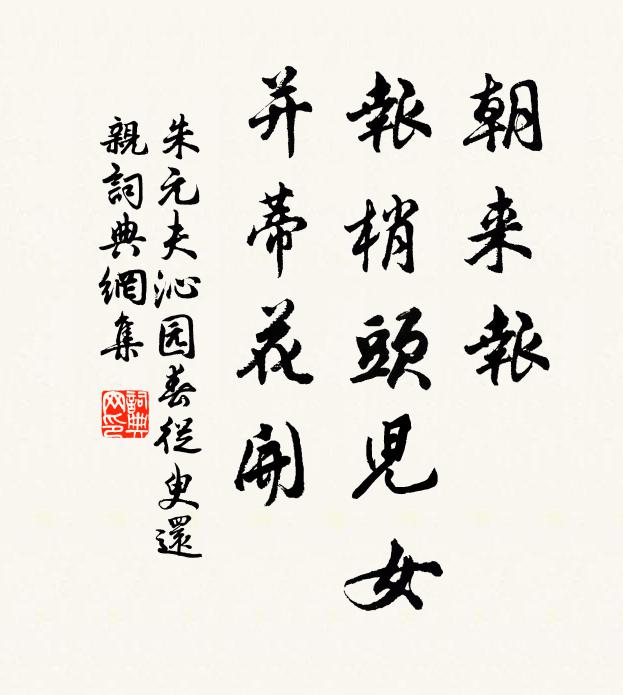 朝来報
報梢頭児女
并蒂花開
朱元夫沁园春従叟還
親詞典網集
詞典网印